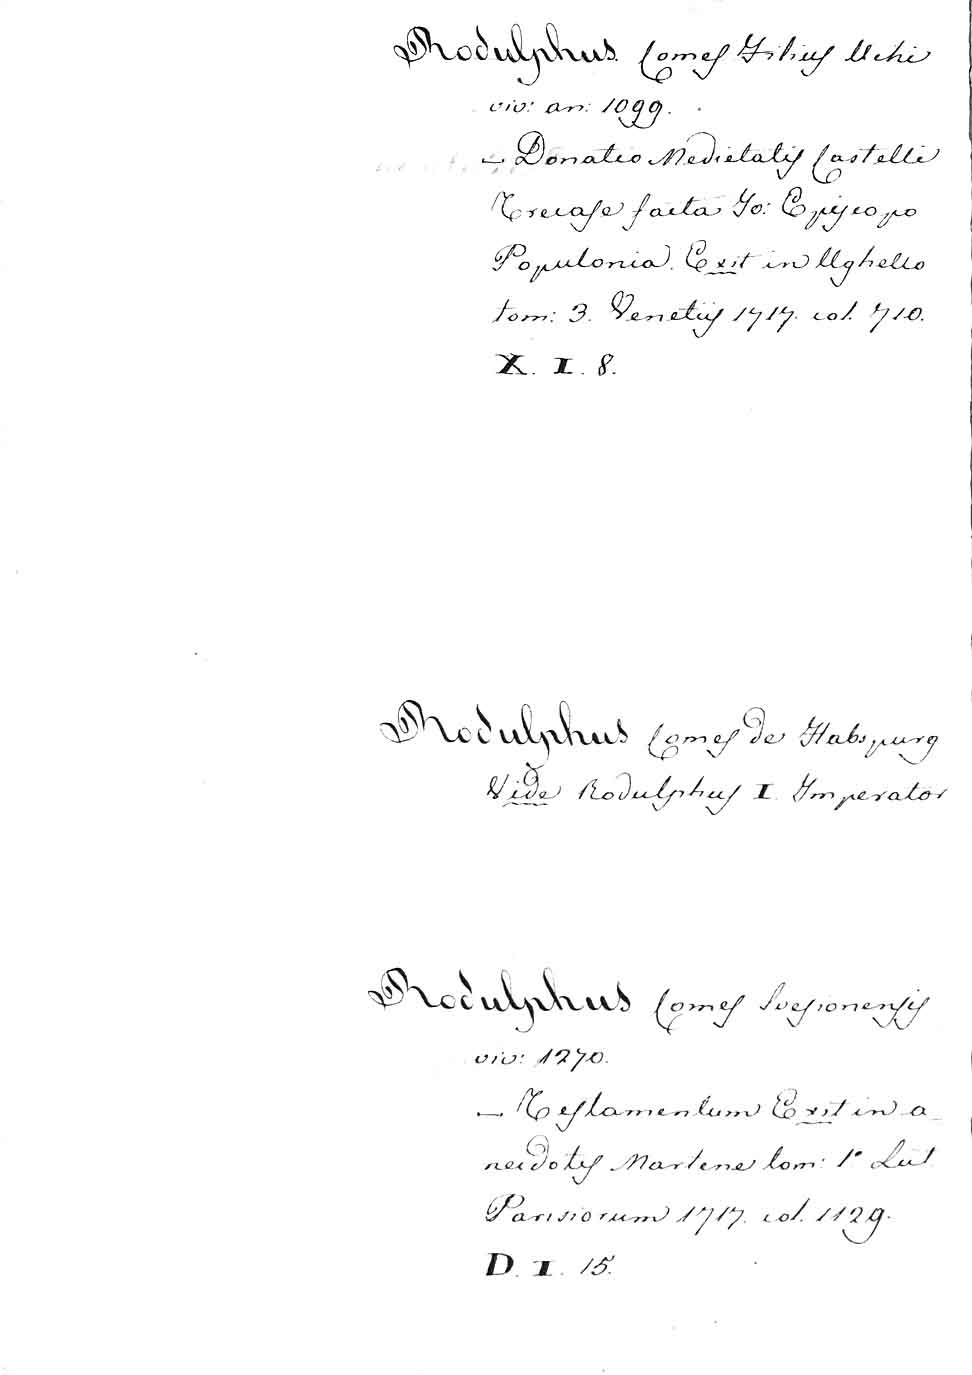 Rodulphus Comes Filius Uchi
viv: an: 1099.
— Donatio Medietatis Castelli
Trecase facta Jo: Episcopo
Populonia. Exit in Ughello
tom: 3. Venetiis 1717. col. 710.
X. I. 8.
Rodulphus Comes de Habspurg
Vide Rodulphus I. Imperator
Rodulphus Comes Svesionensis
viv: 1270.
— Testamentum Exit in a
necdotis Martene tom: 1° Lut
Parisiorum 1717. col. 1129.
D. I. 15.